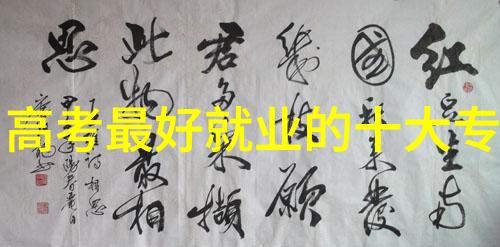 高考最好就业的十大专
红豆生南
國春来發
幾枝願
君多采擷
此物最相
思